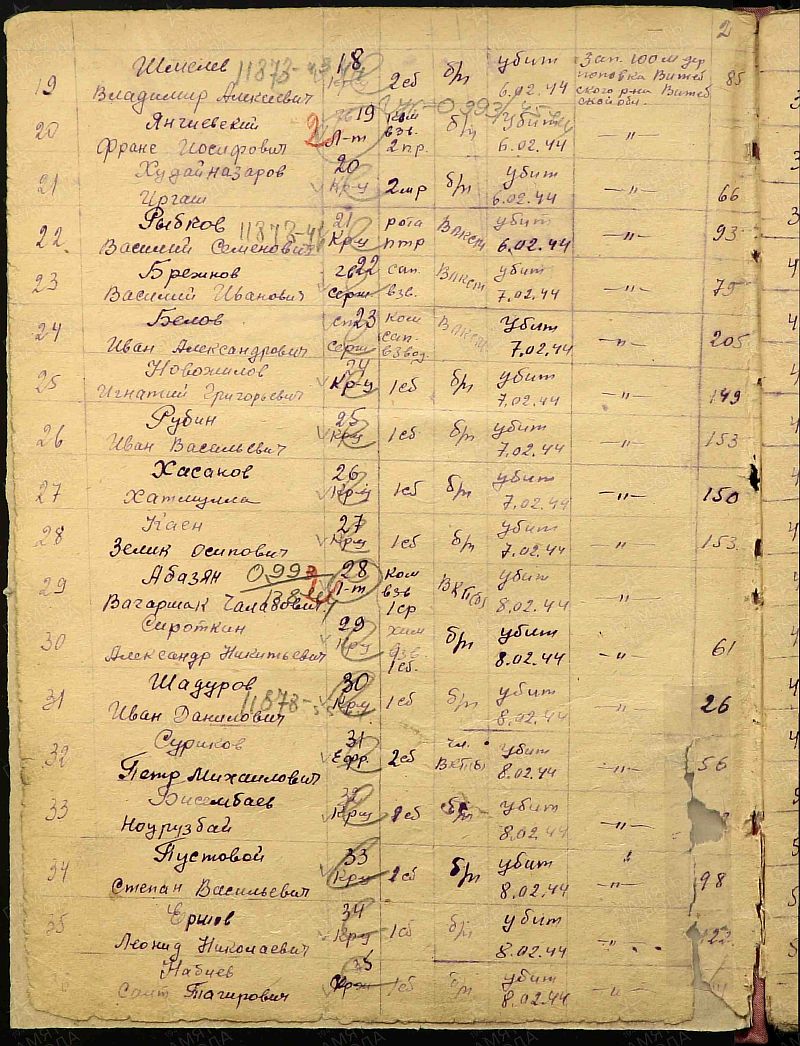 2
19 Шмелев 11873-43 18 2сб б/п убит Зап. 100 м дер
Владимир Алексеевич 6.02.44 поповка Витеб 85
ского р-на Витеб
ской обл.
20 Янчиевский 19 ком б/п убит
Франс Иосифович Л-т взв. 6.02.44 —"—
2 пр.
21 Худайназаров 20 2мр б/п убит
Иргаш Кр-ц 6.02.44 —"— 66
22 Рыбков 11873-46 21 рота ВЛКСМ убит
Василий Семенович Кр-ц птр 6.02.44 —"— 93
23 Брежнов 22 сап. ВЛКСМ убит
Василий Иванович Серж взв. 7.02.44 —"— 75
24 Белов ст 23 ком ВЛКСМ убит
Иван Александрович Серж сап. 7.02.44 —"— 205
взвод.
25 Новожилов 24 1сб б/п убит
Игнатий Григорьевич Кр-ц 7.02.44 —"— 149
26 Рубин 25 1сб б/п убит
Иван Васильевич Кр-ц 7.02.44 —"— 153
27 Хасанов 26 1сб б/п убит
Хатмулла Кр-ц 7.02.44 —"— 150
28 Каен 27 1сб б/п убит
Зелик Осипович Кр-ц 7.02.44 —"— 153
29 Абазян 0,993 28 ком ВКП(б) убит
Вагаршак Чалабович Л-т взв 8.02.44 —"—
1ср
30 Сироткин 29 хим б/п убит
Александр Никитьевич Кр-ц взв. 8.02.44 —"— 61
1сб.
31 Шадуров 11873- 30 1сб б/п убит
Иван Данилович Кр-ц 8.02.44 —"— 26
32 Суриков 31 2сб чл. убит
Петр Михайлович Ефр. ВКП(б) 8.02.44 —"— 56
33 Бисембаев 32 2сб б/п убит
Ноурузбай Кр-ц 8.02.44 —"—
34 Пустовой 33 2сб б/п убит
Степан Васильевич Кр-ц 8.02.44 —"— 98
35 Ершов 34 1сб б/п убит
Леонид Николаевич Кр-ц 8.02.44 —"— 122
Набиев 35 1сб б/п убит
Саит Тагирович Кр-ц 8.02.44 —"—